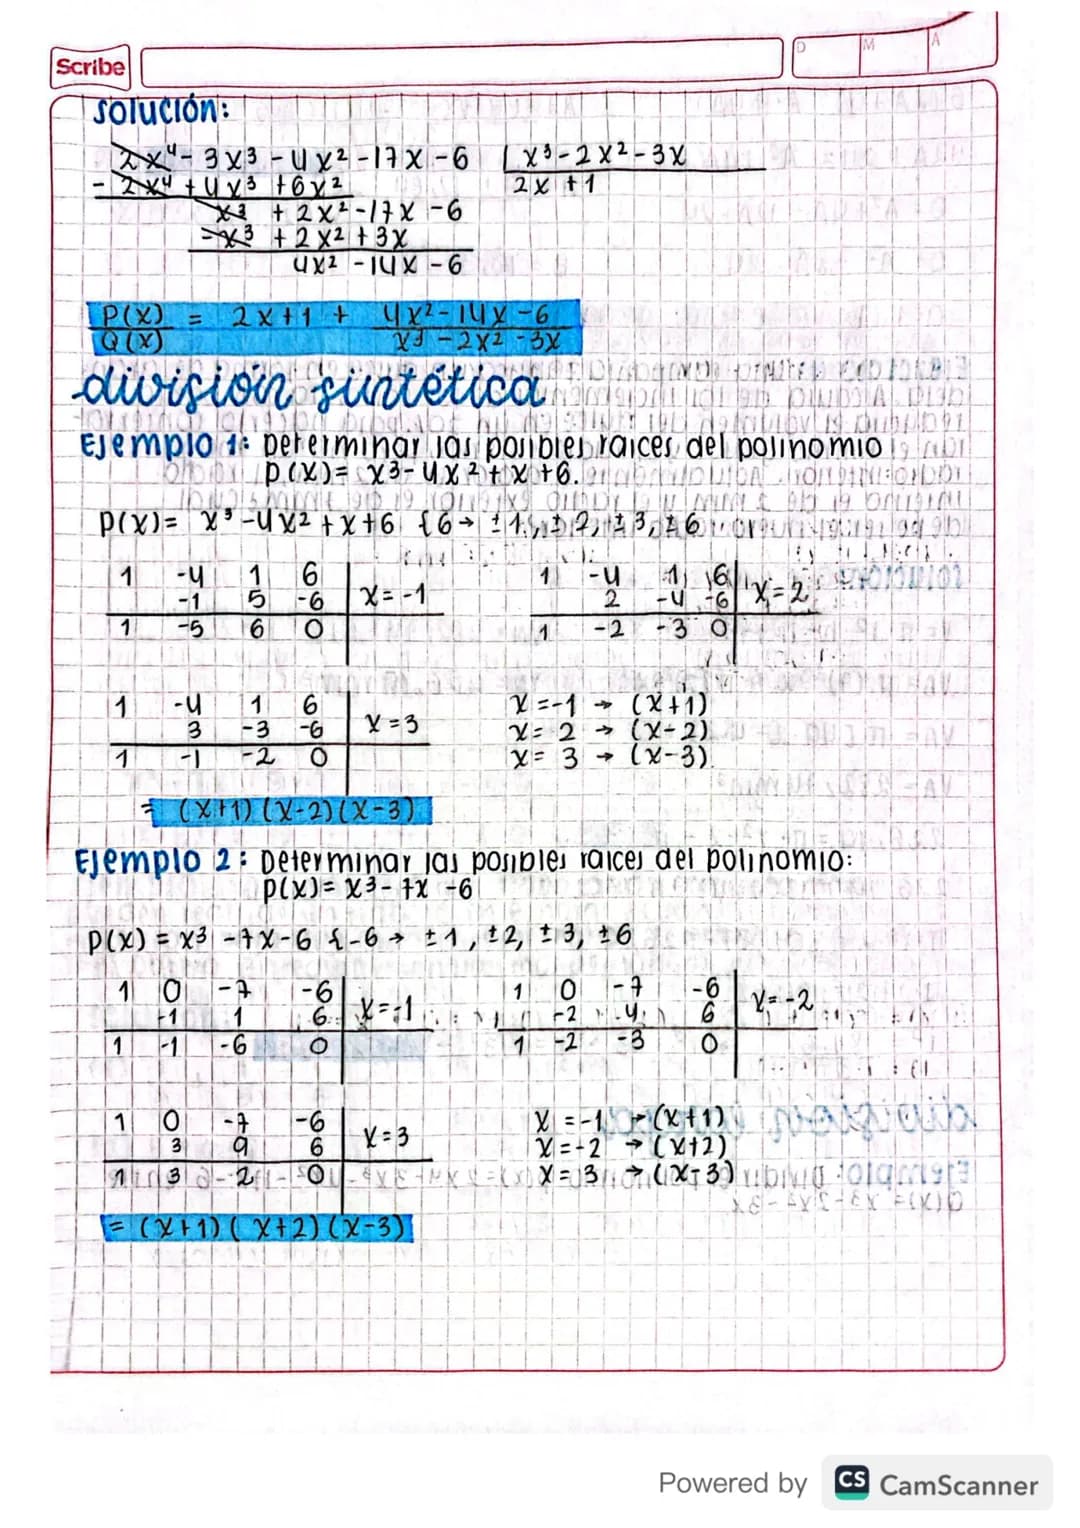 Scribe
D M A
Solución:
2x⁴ - 3x³ - 4x² - 17x - 6 | x³ - 2x² - 3x
- 2x⁴ + 4x³ + 6x² 2x + 1
x³ + 2x² - 17x - 6
- x³ + 2x² + 3x
4x² - 14x - 6
P(x) = 2x + 1 + 4x² - 14x - 6
Q(x) x³ - 2x² - 3x
división sintética
Ejemplo 1: Determinar las posibles raices del polinomio
p(x) = x³ - 4x² + x + 6.
p(x) = x³ - 4x² + x + 6 {6 → ±1, ±2, ±3, ±6
1 -4 1 6
-1 5 -6 x = -1
1 -5 6 0
1 -4 1 6
2 -4 -6 x = 2
1 -2 -3 0
1 -4 1 6
3 -3 -6 x = 3
1 -1 -2 0
x = -1 → (x+1)
x = 2 → (x-2)
x = 3 → (x-3)
= (x+1) (x-2) (x-3)
Ejemplo 2: Determinar las posibles raices del polinomio:
p(x) = x³ - 7x - 6
p(x) = x³ - 7x - 6 {-6 → ±1, ±2, ±3, ±6
1 0 -7 -6
-1 1 6 x = -1
1 -1 -6 0
1 0 -7 -6
-2 4 6 x = -2
1 -2 -3 0
1 0 -7 -6
3 9 6 x = 3
1 3 2 0
x = -1 → (x+1)
x = -2 → (x+2)
x = 3 → (x-3)
= (x+1) (x+2) (x-3)
Powered by CS CamScanner